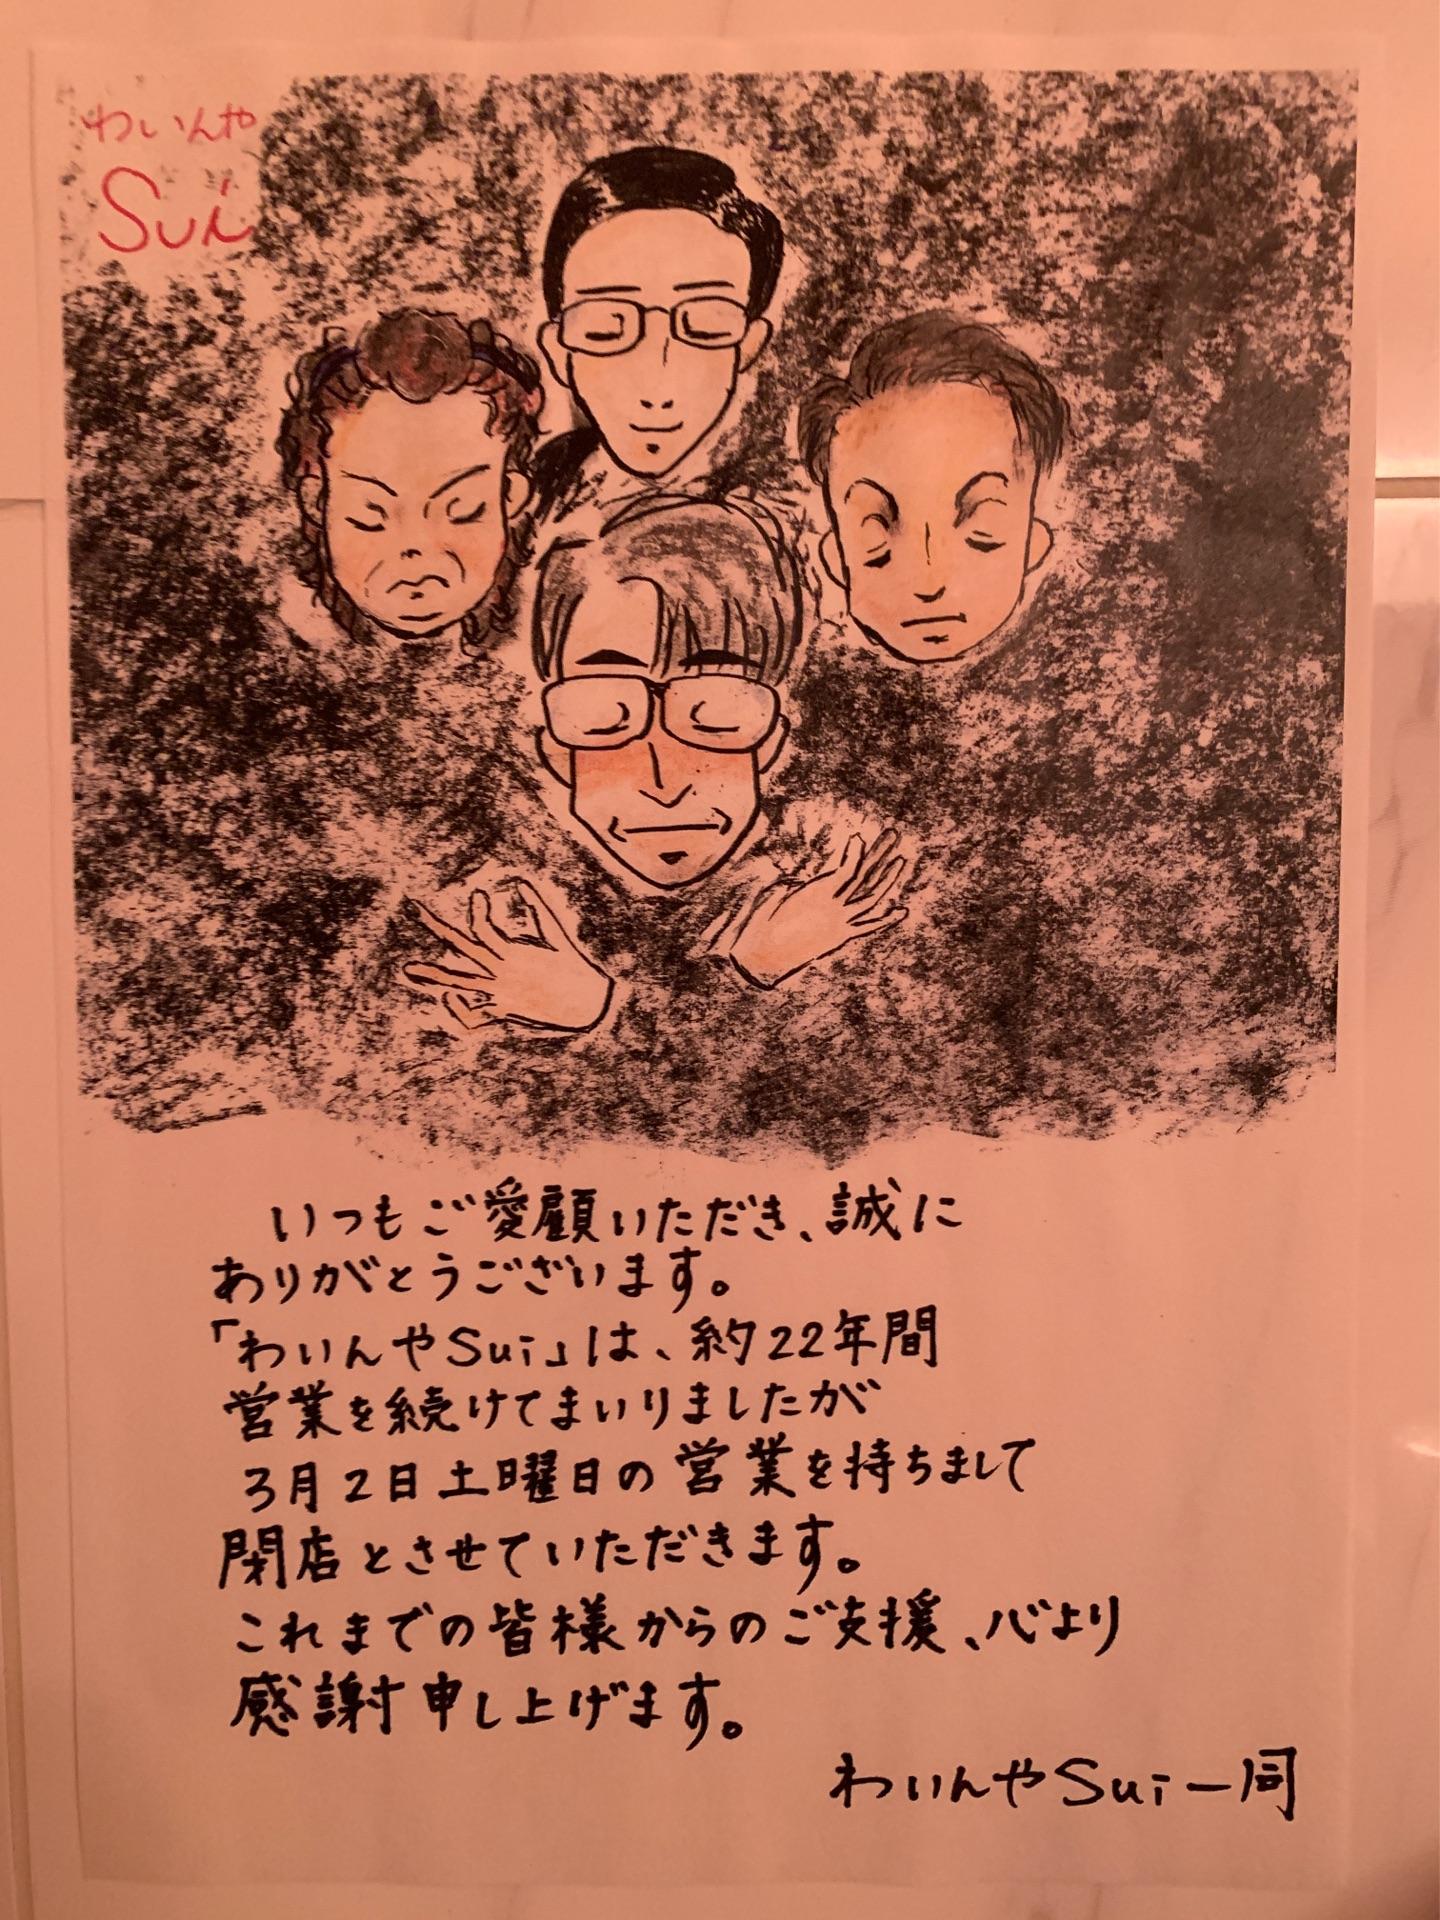 わいんや
Sui
いつもご愛顧いただき、誠に
ありがとうございます。
「わいんやSui」は、約22年間
営業を続けてまいりましたが
3月2日土曜日の営業を持ちまして
閉店とさせていただきます。
これまでの皆様からのご支援、心より
感謝申し上げます。
わいんやSui一同